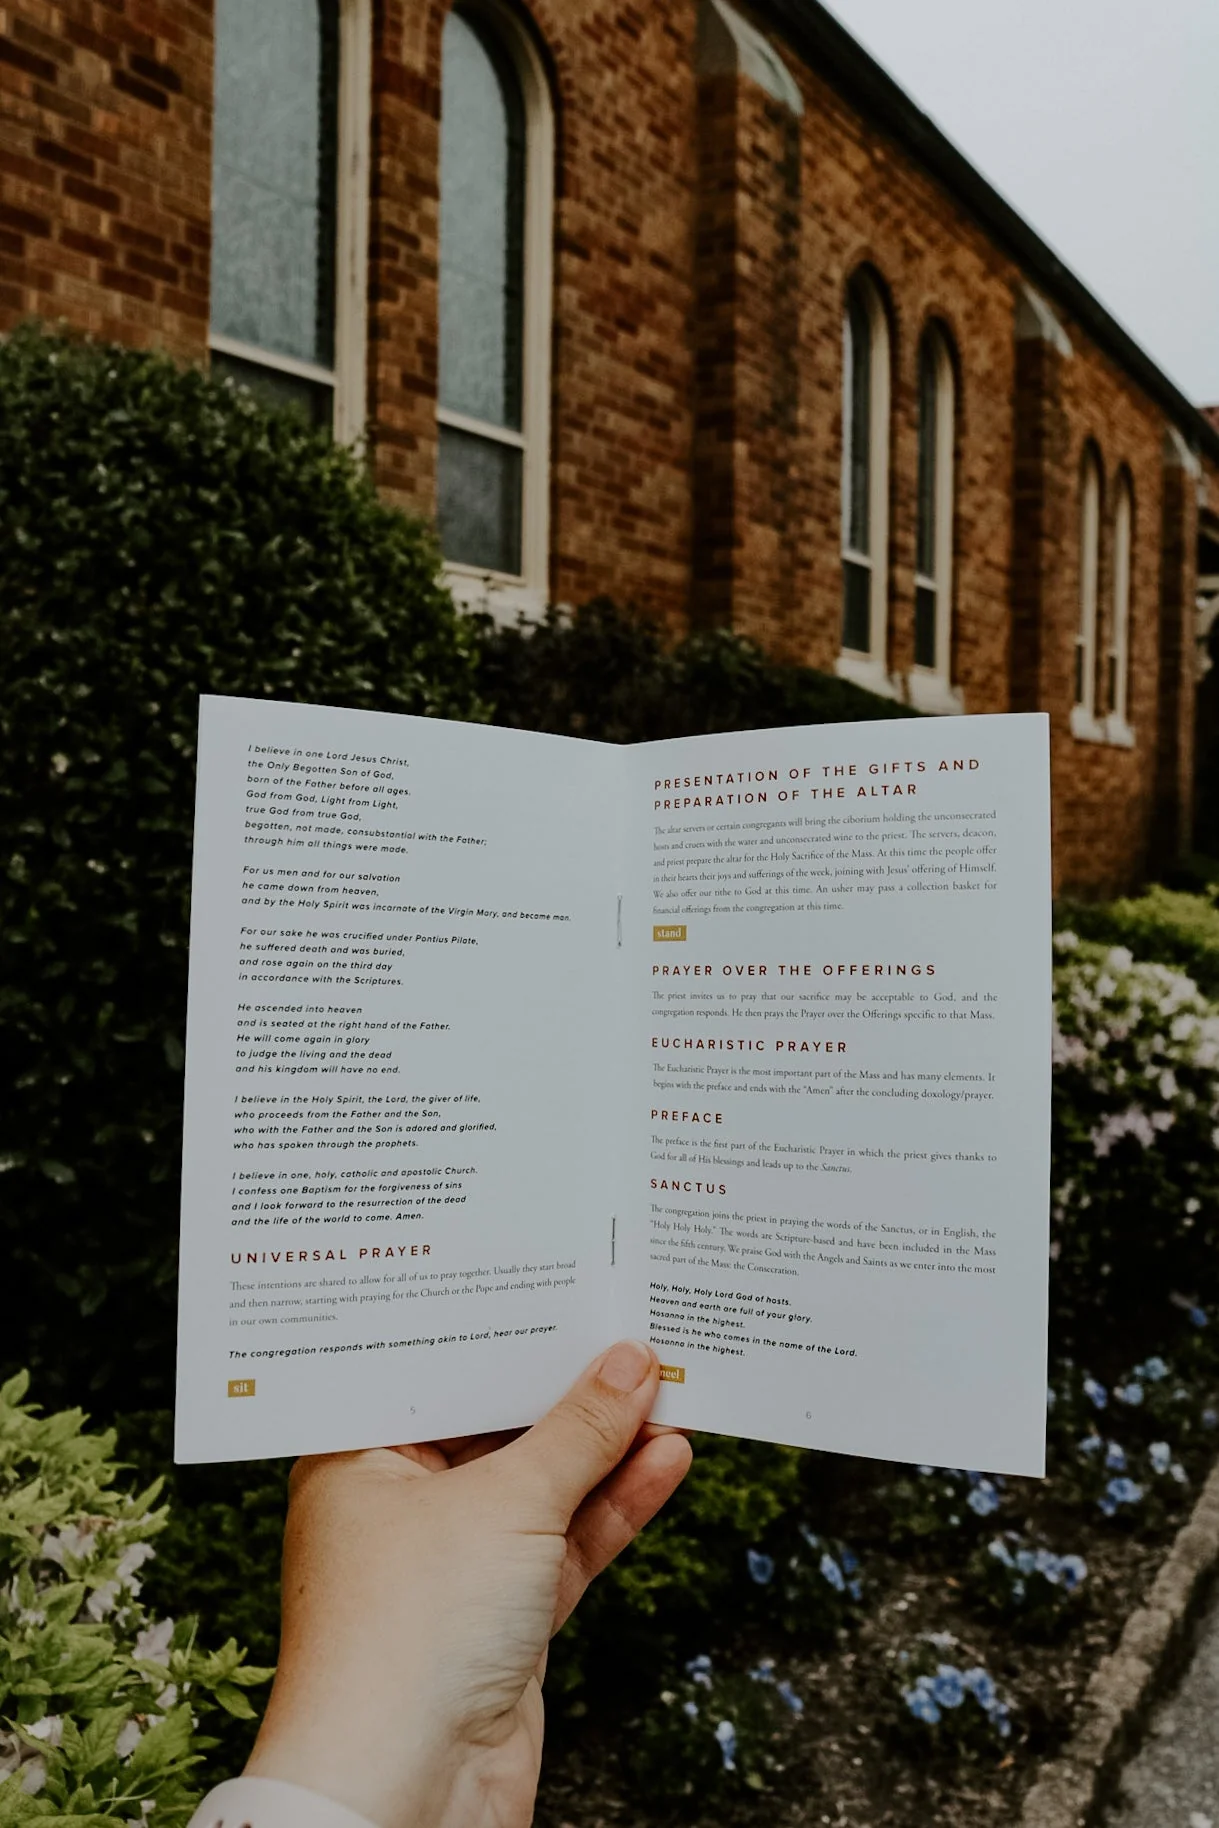 I believe in one Lord Jesus Christ,
the Only Begotten Son of God,
born of the Father before all ages.
God from God, Light from Light,
true God from true God,
begotten, not made, consubstantial with the Father;
through him all things were made.
For us men and for our salvation
he came down from heaven,
and by the Holy Spirit was incarnate of the Virgin Mary, and became man.
For our sake he was crucified under Pontius Pilate,
he suffered death and was buried,
and rose again on the third day
in accordance with the Scriptures.
He ascended into heaven
and is seated at the right hand of the Father.
He will come again in glory
to judge the living and the dead
and his kingdom will have no end.
I believe in the Holy Spirit, the Lord, the giver of life,
who proceeds from the Father and the Son,
who with the Father and the Son is adored and glorified,
who has spoken through the prophets.
I believe in one, holy, catholic and apostolic Church.
I confess one Baptism for the forgiveness of sins
and I look forward to the resurrection of the dead
and the life of the world to come. Amen.
UNIVERSAL PRAYER
These intentions are shared to allow for all of us to pray together. Usually they start broad
and then narrow, starting with praying for the Church or the Pope and ending with people
in our own communities.
The congregation responds with something akin to Lord, hear our prayer.
sit
5
PRESENTATION OF THE GIFTS AND
PREPARATION OF THE ALTAR
The altar servers or certain congregants will bring the ciborium holding the unconsecrated
hosts and cruets with the water and unconsecrated wine to the priest. The servers, deacon,
and priest prepare the altar for the Holy Sacrifice of the Mass. At this time the people offer
in their hearts their joys and sufferings of the week, joining with Jesus' offering of Himself.
We also offer our tithe to God at this time. An usher may pass a collection basket for
financial offerings from the congregation at this time.
stand
PRAYER OVER THE OFFERINGS
The priest invites us to pray that our sacrifice may be acceptable to God, and the
congregation responds. He then prays the Prayer over the Offerings specific to that Mass.
EUCHARISTIC PRAYER
The Eucharistic Prayer is the most important part of the Mass and has many elements. It
begins with the preface and ends with the "Amen" after the concluding doxology/prayer.
PREFACE
The preface is the first part of the Eucharistic Prayer in which the priest gives thanks to
God for all of His blessings and leads up to the Sanctus.
SANCTUS
The congregation joins the priest in praying the words of the Sanctus, or in English, the
"Holy Holy Holy." The words are Scripture-based and have been included in the Mass
since the fifth century. We praise God with the Angels and Saints as we enter into the most
sacred part of the Mass: the Consecration.
Holy, Holy, Holy Lord God of hosts.
Heaven and earth are full of your glory.
Hosanna in the highest.
Blessed is he who comes in the name of the Lord.
Hosanna in the highest.
neel
6